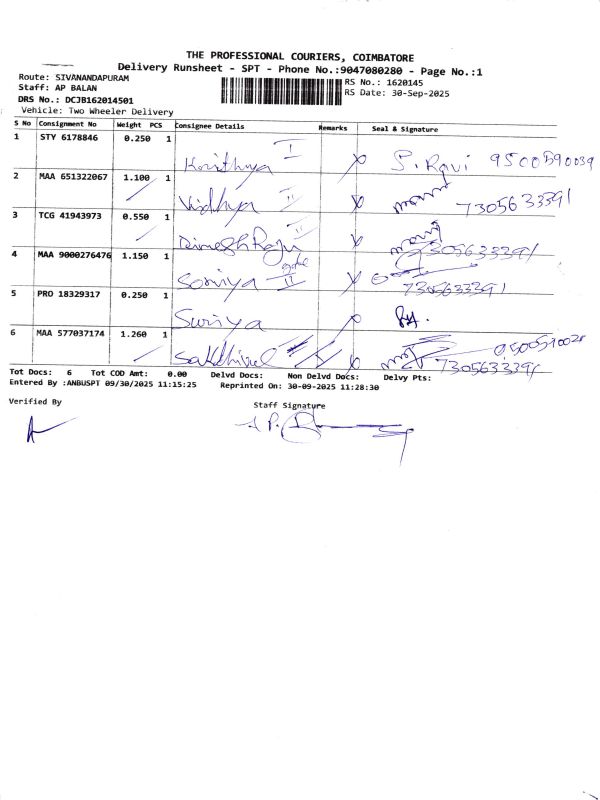 THE PROFESSIONAL COURIERS, COIMBATORE
Delivery Runsheet - SPT - Phone No.:9047080280 - Page No.:1
Route: SIVANANDAPURAM RS No.: 1620145
Staff: AP BALAN RS Date: 30-Sep-2025
DRS No.: DCJB162014501
Vehicle: Two Wheeler Delivery
S No Consignment No Weight PCS Consignee Details Remarks Seal & Signature
1 STY 6178846 0.250 1
I
Krithya S. Ravi
2 MAA 651322067 1.100 1
II
Vidhya 7305633391
3 TCG 41943973 0.550 1
II
Dinesh Raju 7305633391
4 MAA 9000276476 1.150 1
Soniya II 7305633391
5 PRO 18329317 0.250 1
Suriya
6 MAA 577037174 1.260 1
Sakthivel 7305633391
Tot Docs: 6 Tot COD Amt: 0.00 Delvd Docs: Non Delvd Docs: Delvy Pts:
Entered By :ANBUSPT 09/30/2025 11:15:25 Reprinted On: 30-09-2025 11:28:30
Verified By Staff Signature